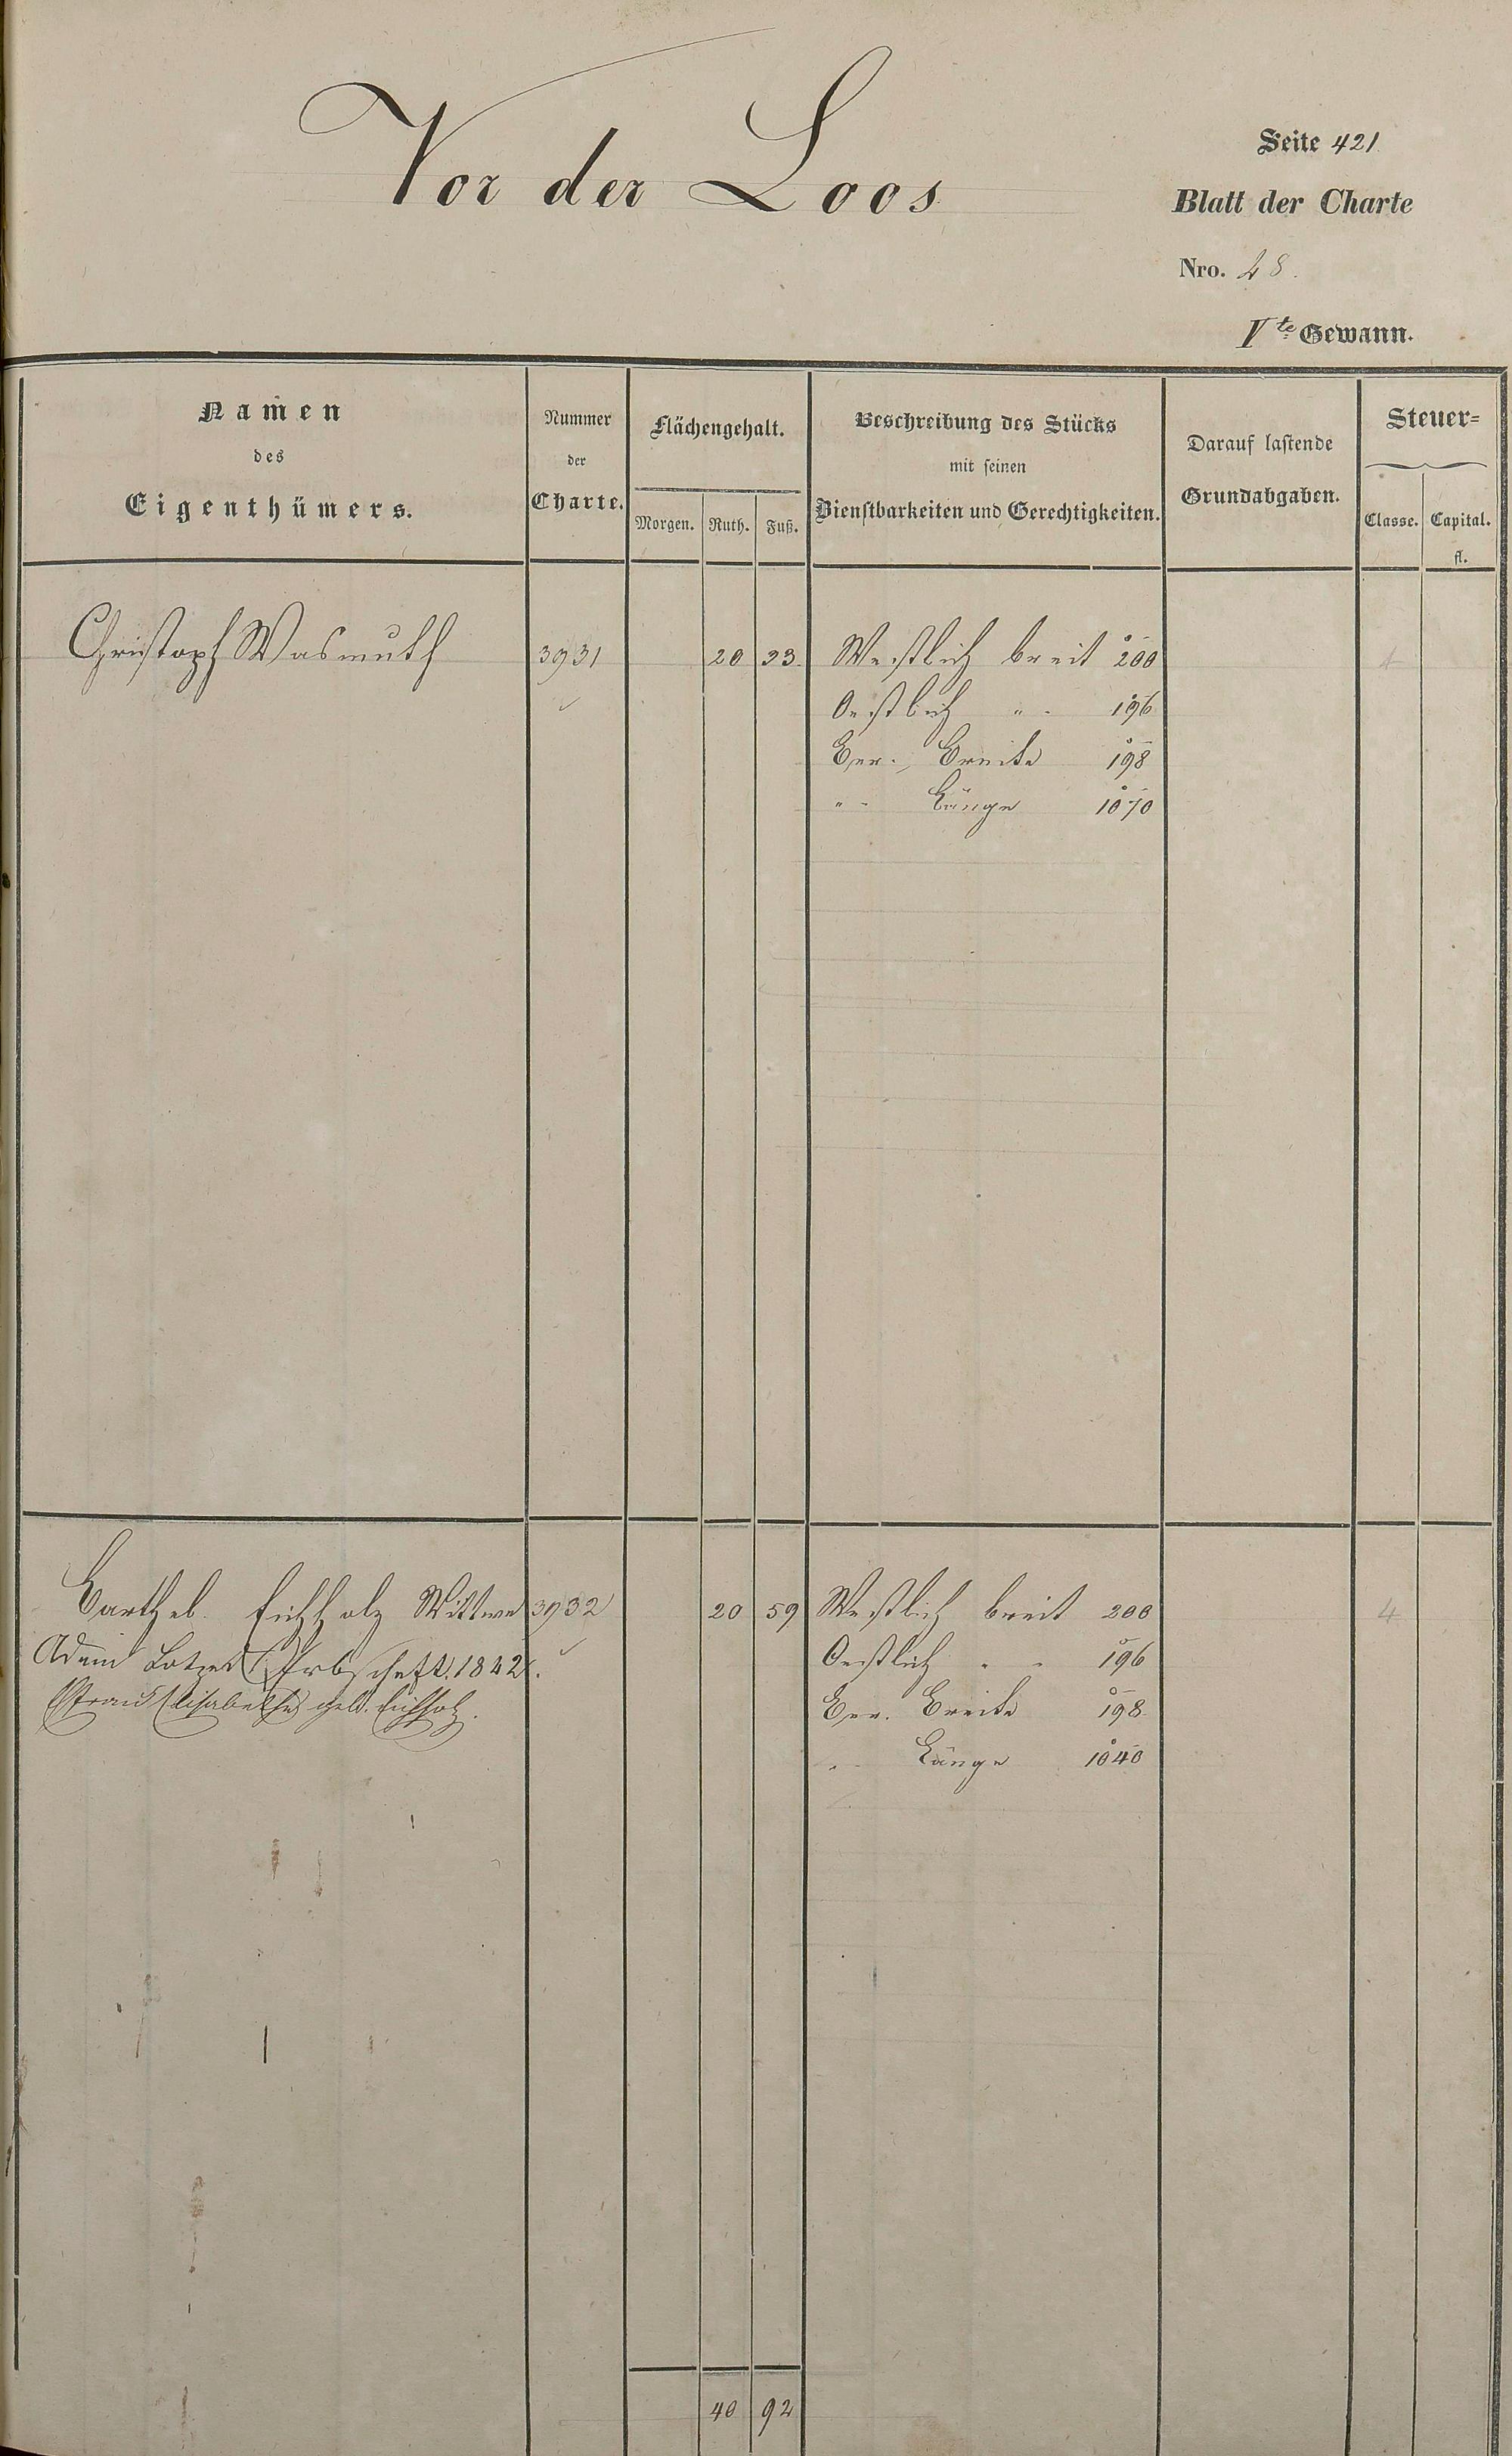 Vor der Loos
Seite 421
Blatt der Charte
Nro. 48.
Vte Gewann.
Namen
des
Eigenthümers.
Nummer
der
Charte.
Flächengehalt.
Morgen. Ruth. Fuß.
Beschreibung des Stücks
mit seinen
Dienstbarkeiten und Gerechtigkeiten.
Darauf lastende
Grundabgaben.
Steuer=
Classe. Capital.
fl.
Christoph Wasmuth 3931 20 33. Westlich breit 200 4
Oestlich " - 196
Ber. Breite 198
" - Länge 1070
Barthel. Eichholz Wittwe 3932 20 59 Westlich breit 200 4
Adam Erbschaft. 1842. Oestlich " - 196
Frau Elisabetha geb. Eichholz. Ber. Breite 198
" - Länge 1040
40 92